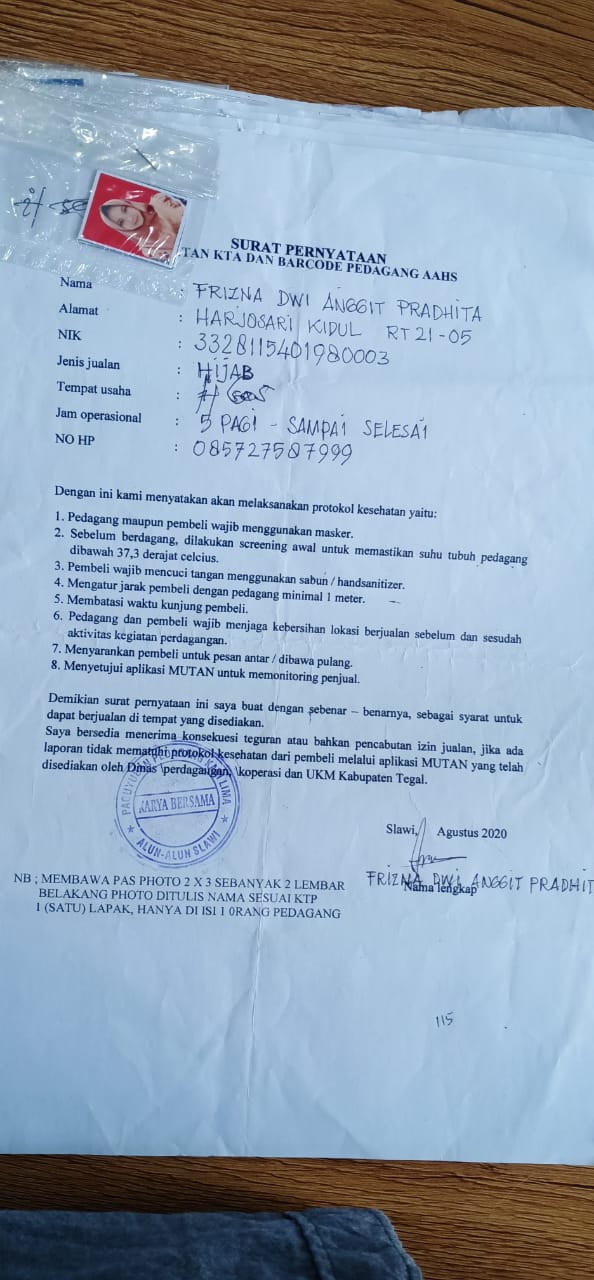 SURAT PERNYATAAN
TAN KTA DAN BARCODE PEDAGANG AAHS
Nama : FRIZNA DWI ANGGIT PRADHITA
Alamat : HARJOSARI KIDUL RT 21-05
NIK : 3328115401980003
Jenis jualan : HIJAB
Tempat usaha :
Jam operasional : 5 PAGI - SAMPAI SELESAI
NO HP : 085727587999
Dengan ini kami menyatakan akan melaksanakan protokol kesehatan yaitu:
1. Pedagang maupun pembeli wajib menggunakan masker.
2. Sebelum berdagang, dilakukan screening awal untuk memastikan suhu tubuh pedagang
dibawah 37,3 derajat celcius.
3. Pembeli wajib mencuci tangan menggunakan sabun / handsanitizer.
4. Mengatur jarak pembeli dengan pedagang minimal 1 meter.
5. Membatasi waktu kunjung pembeli.
6. Pedagang dan pembeli wajib menjaga kebersihan lokasi berjualan sebelum dan sesudah
aktivitas kegiatan perdagangan.
7. Menyarankan pembeli untuk pesan antar / dibawa pulang.
8. Menyetujui aplikasi MUTAN untuk memonitoring penjual.
Demikian surat pernyataan ini saya buat dengan sebenar – benarnya, sebagai syarat untuk
dapat berjualan di tempat yang disediakan.
Saya bersedia menerima konsekuesi teguran atau bahkan pencabutan izin jualan, jika ada
laporan tidak mematuhi protokol kesehatan dari pembeli melalui aplikasi MUTAN yang telah
disediakan oleh Dinas \perdagangan, \koperasi dan UKM Kabupaten Tegal.
KARYA BERSAMA
ALUN-ALUN SLAWI
Slawi, Agustus 2020
FRIZNA DWI ANGGIT PRADHIT
Nama lengkap
NB ; MEMBAWA PAS PHOTO 2 X 3 SEBANYAK 2 LEMBAR
BELAKANG PHOTO DITULIS NAMA SESUAI KTP
1 (SATU) LAPAK, HANYA DI ISI 1 0RANG PEDAGANG
115